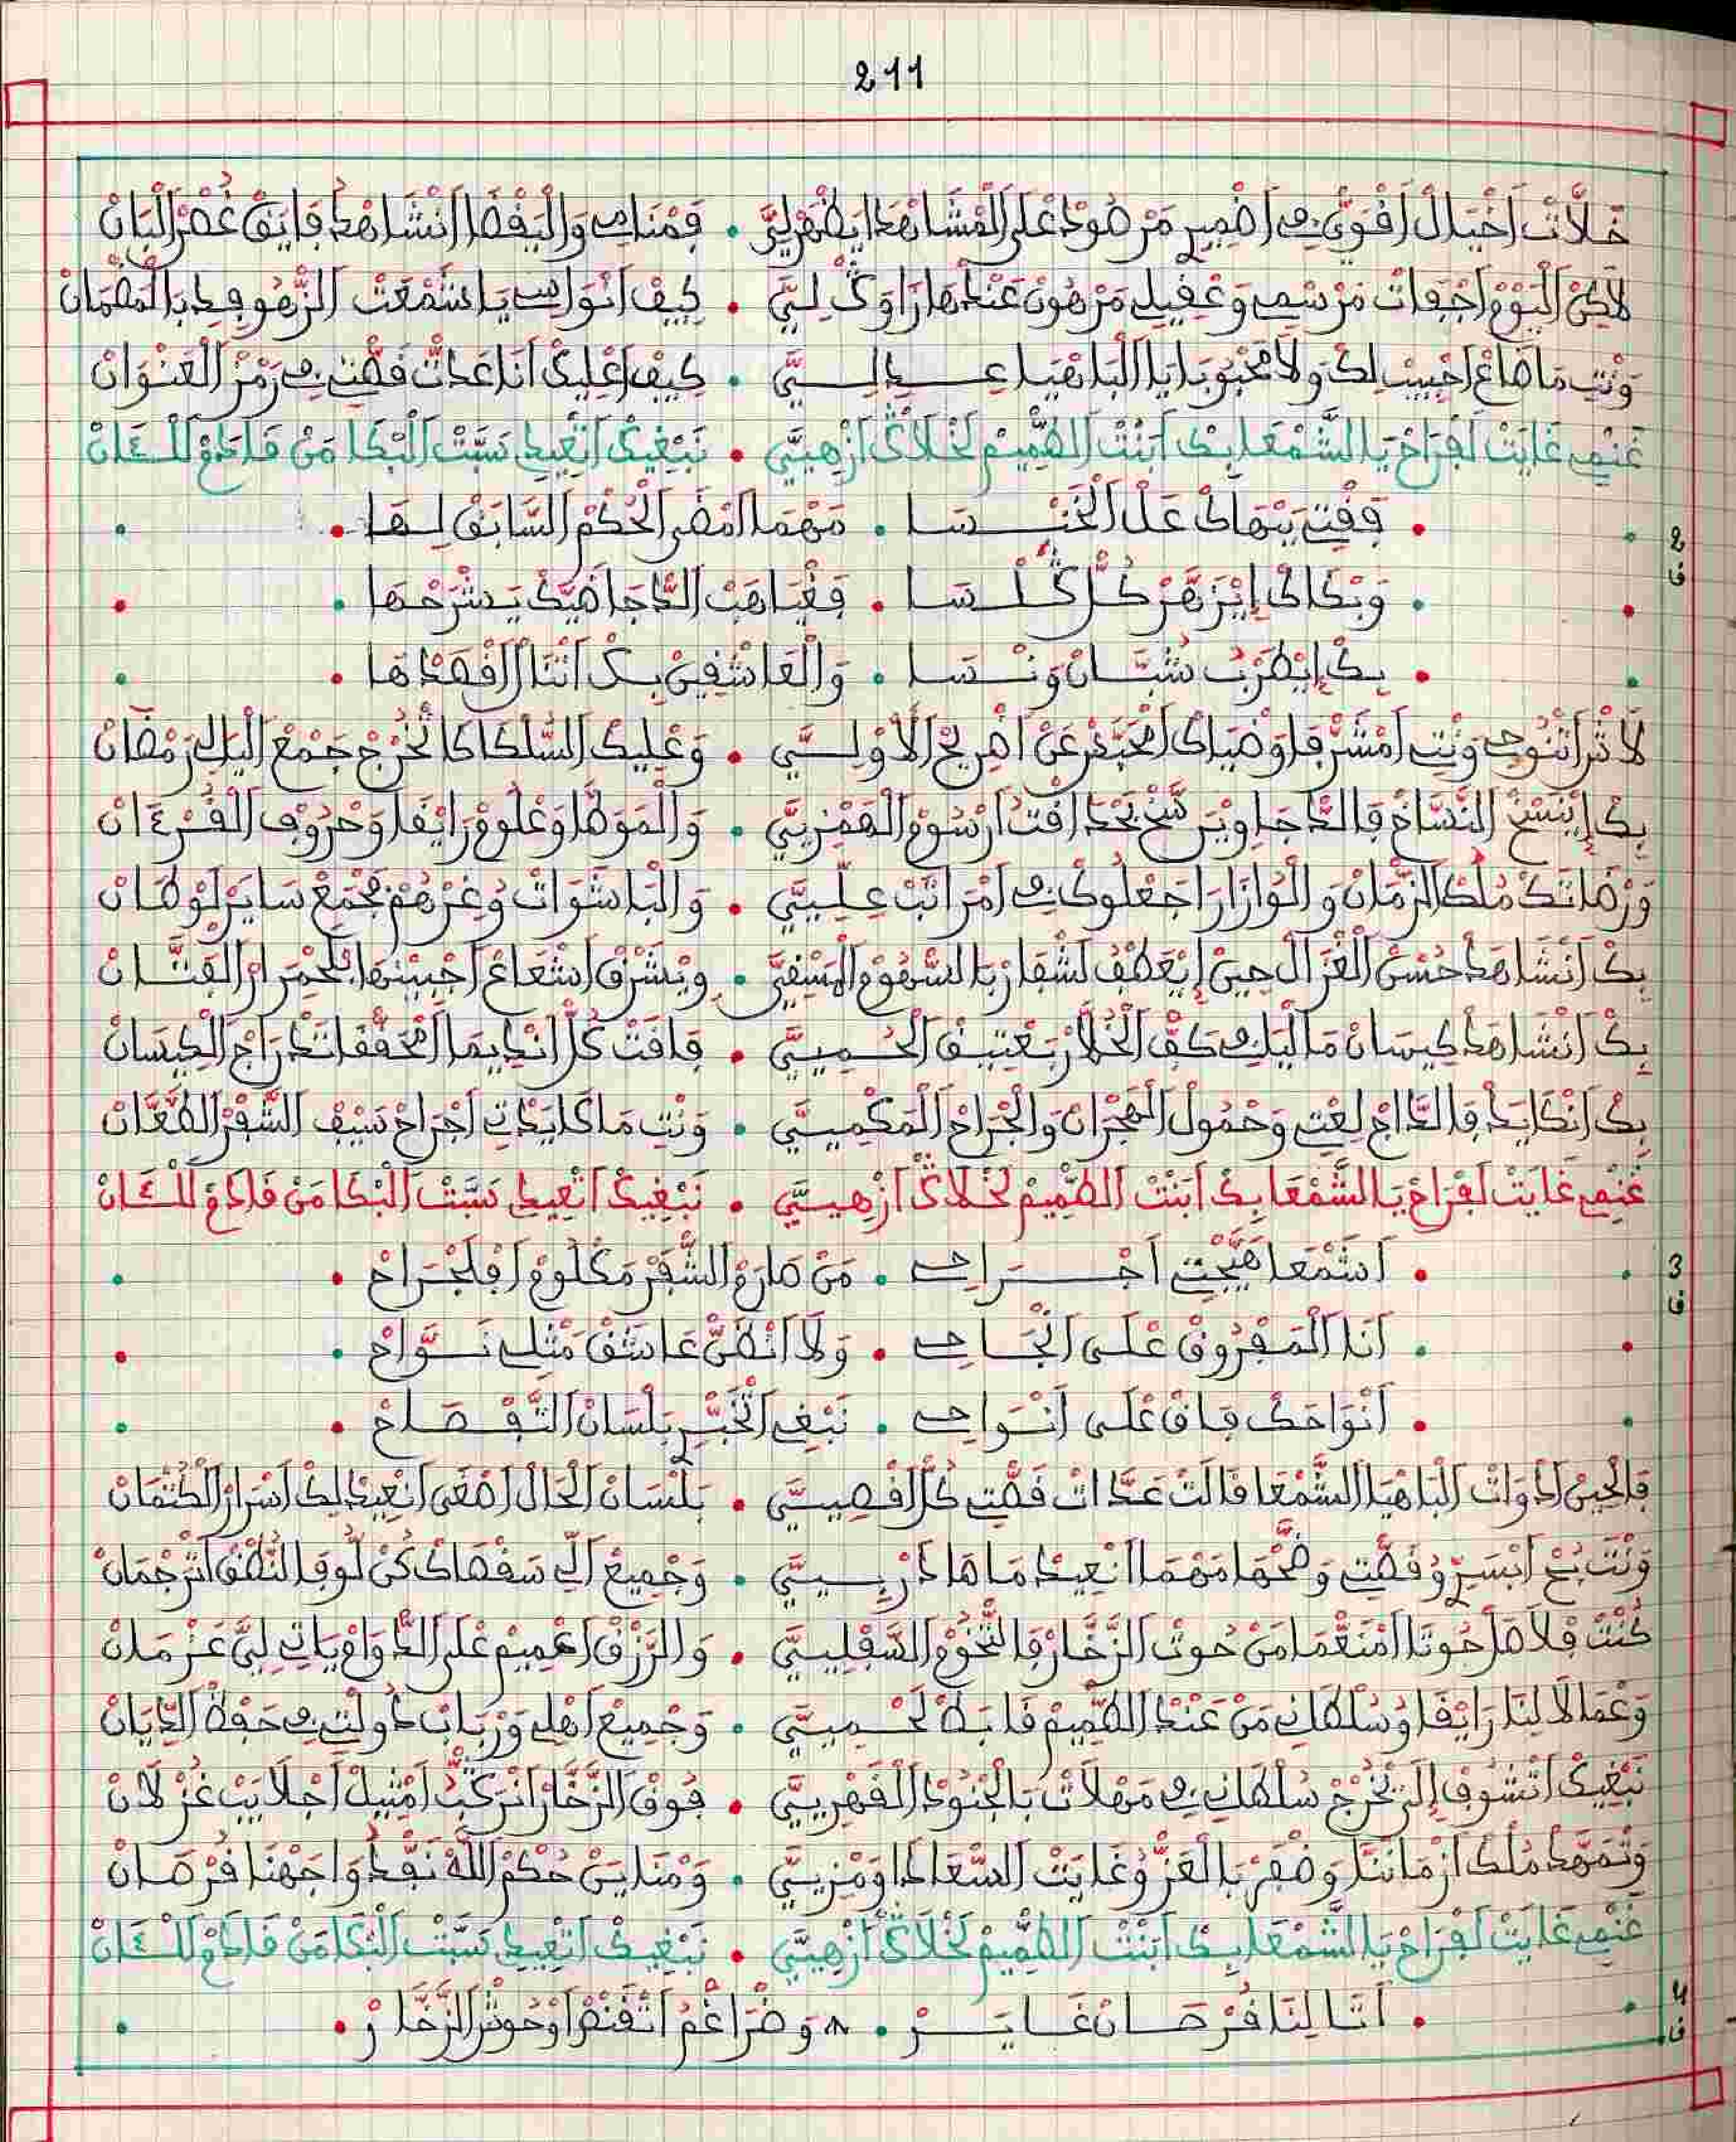 211
خلات اخيال افوى في اضمير مرصود على المشاهدا يظهر لي • فمنامي واليقضا انشاهد فايق غصن البان
لاكن اليوم اجفات مرسمي وعقيلي مرهون عندها راوڭ لي • كيف انواسي يا شمعت الزهو وقلب بالمضمان
ونت ما ضاع احبيب لك ولا محبوبا يا الباهيا عدلي • كيف اعليك انا عدت قصتي في رمز العنوان
غنمي غايت لفراح يا الشمعا بك ابنت الضميم لخلاڭ ازهي • نبغيك اتعيد سبت البكا من قادم للثان
2
ف
قفتي بنهاك عل الخنسا • مهما امضى الحكم السابق لها
وبكاك ايزهر كل ڭلسا • فغياهب الدجا ضيك يشرحها
بك ايطرب شبان ونسا • والعاشقين بك اتنال اقصدها
لا ثر اتنوحي ونت امشرفا وضياك امخبر عن اضريح الاولي • وعليك السلكا كا تخرج جمع اليلي رمضان
بك اينسخ النساخ فالدجا ويرسخ بحد افت ارسوم الهمزي • والموطا وعلوم رايقا وحروف القرءان
ورضاتك ملك الزمان والوازارا جعلوك في امراتب علي • والباشوات وغرهم بجمع ساير لوطان
بك انشاهد حسن الغزال حين ايعطف لشفار بالسهوم المسقي • ويشرق اشعاع اجبينها بلحمرار الفتان
بك انشاهد كيسان ما اليلي كف الخلار بعتيق الحمي • فافت كل انديما المحفقا تدراج الكيسان
بك انكايد فالداج لعتي وحمول الهجران والجراح المكمي • ونت ما كايدتي اجراح سيف الشفر الطعان
غنمي غايت لفراح يا الشمعا بك ابنت الضميم لخلاڭ ازهي • نبغيك اتعيد سبت البكا من قادم للثان
3
ف
اشمعا هيجت اجراحي • من صارم الشفر مكلوم افلجراح
انا المفروق على انجاحي • ولا انظن عاشق مثلي نواح
انواحك فاق على انواحي • نبغي اتخبر بلسان التفصاح
فالحين ادوات الباهيا الشمعا قالت عدات قصتي كل اقصي • بلسان الحال اصغى انعيد لك اسرار الكتمان
ونت بح ابسر وقصتي وضحها مهما انعيد ما هادربي • وجميع الي سقصاك كن لو فالنطق اترجمان
كنت فلاصل حوتا امنعما من حوت الزخار فالتخوم السفلي • والرزق اعميم على الدوام ياتي لي عزمان
وعمالا لينا رايقا وسلطاني من عند الضميم قابط لحمي • وجميع اهلي ورباب دولتي في حفظ الديان
نبغيك اتشوف الى تخرج سلطاني في مهلات بالجنود القهري • فوق الزخار انركب امثيل اجلايب غزلان
وتمهد ملك ازماننا وضفر بالعز وغايت السعادا ومزي • ومنا ين حكم الله نفد واجهنا فرصان
غنمي غايت لفراح يا الشمعا بك ابنت الضميم لخلاڭ ازهي • نبغيك اتعيد سبت البكا من قادم للثان
4
ف
اتا لنا فرصان غاير • وضراغم اتقنص اوحوش الزخار